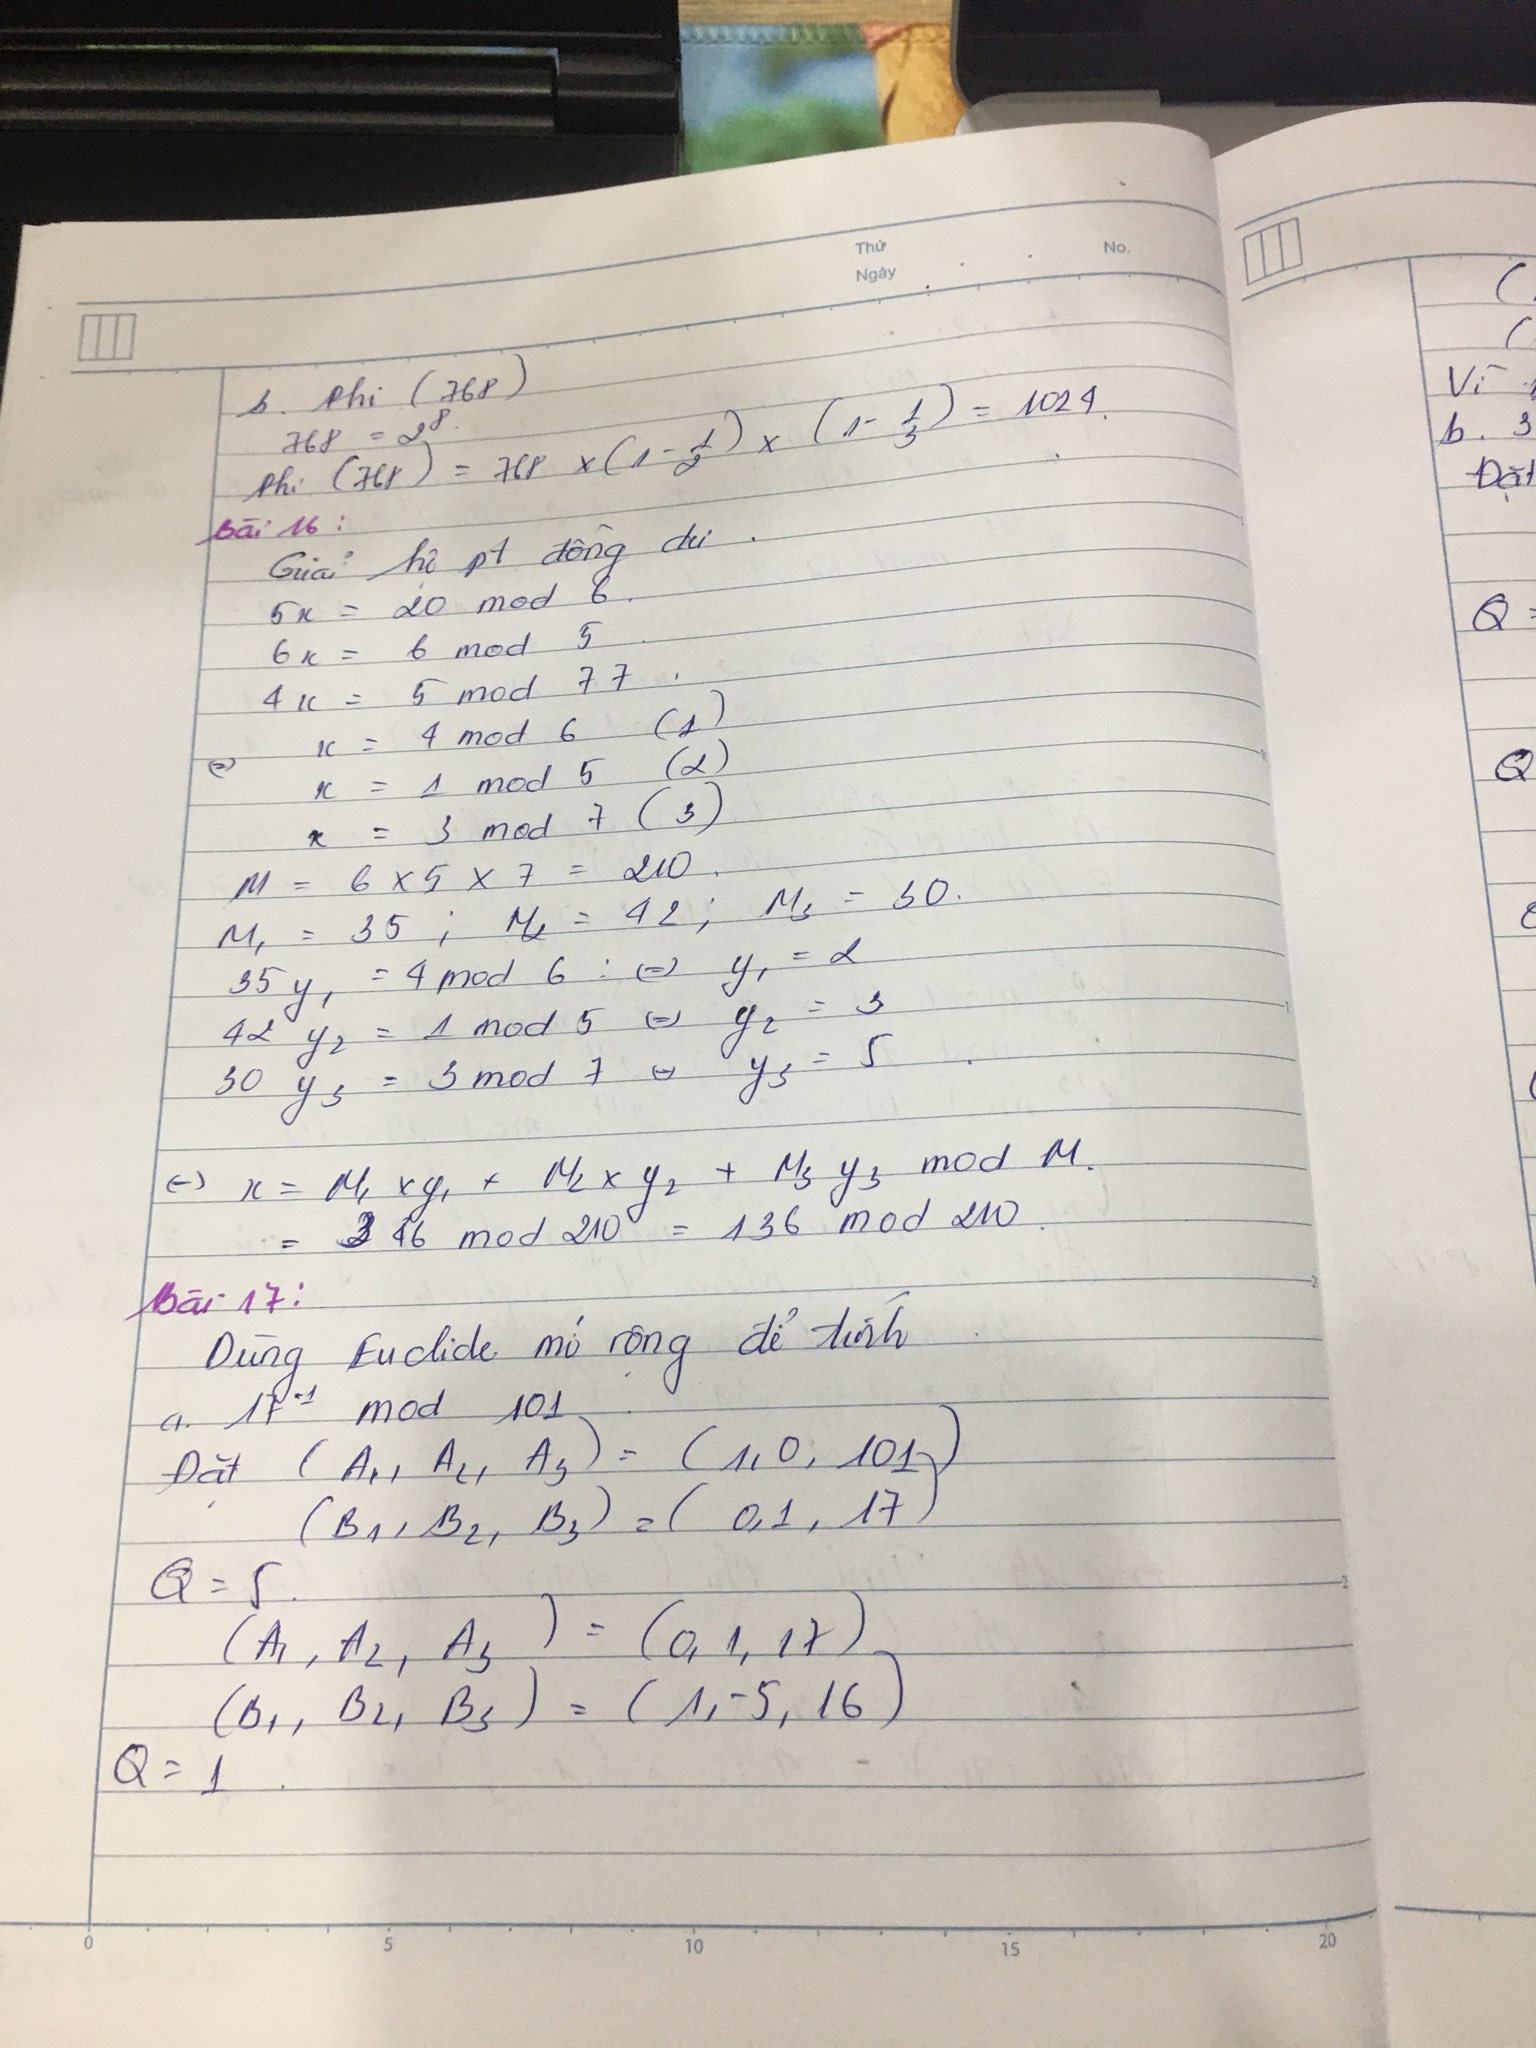 Thứ
Ngày
No.
b. Phi (768)
768 = 2⁸.
Phi (768) = 768 x (1 - 1/2) x (1 - 1/3) = 1024.
Bài 16:
Giải hệ pt đồng dư.
5x = 20 mod 6.
6x = 6 mod 5
4x = 5 mod 77.
x = 4 mod 6 (1)
(=) x = 1 mod 5 (2)
x = 3 mod 7 (3)
M = 6 x 5 x 7 = 210.
M₁ = 35 ; M₂ = 42 ; M₃ = 30.
35 y₁ = 4 mod 6 : (=) y₁ = 2
42 y₂ = 1 mod 5 (=) y₂ = 3
30 y₃ = 3 mod 7 (=) y₃ = 5
(=) x = M₁ x y₁ + M₂ x y₂ + M₃ y₃ mod M.
= 346 mod 210 = 136 mod 210.
Bài 17:
Dùng Euclide mở rộng để tính
a. 17⁻¹ mod 101
Đặt (A₁, A₂, A₃) = (1, 0, 101)
(B₁, B₂, B₃) = (0, 1, 17)
Q = 5.
(A₁, A₂, A₃) = (0, 1, 17)
(B₁, B₂, B₃) = (1, -5, 16)
Q = 1.
0 5 10 15 20
Vì
b. 3
Đặt
Q =
Q